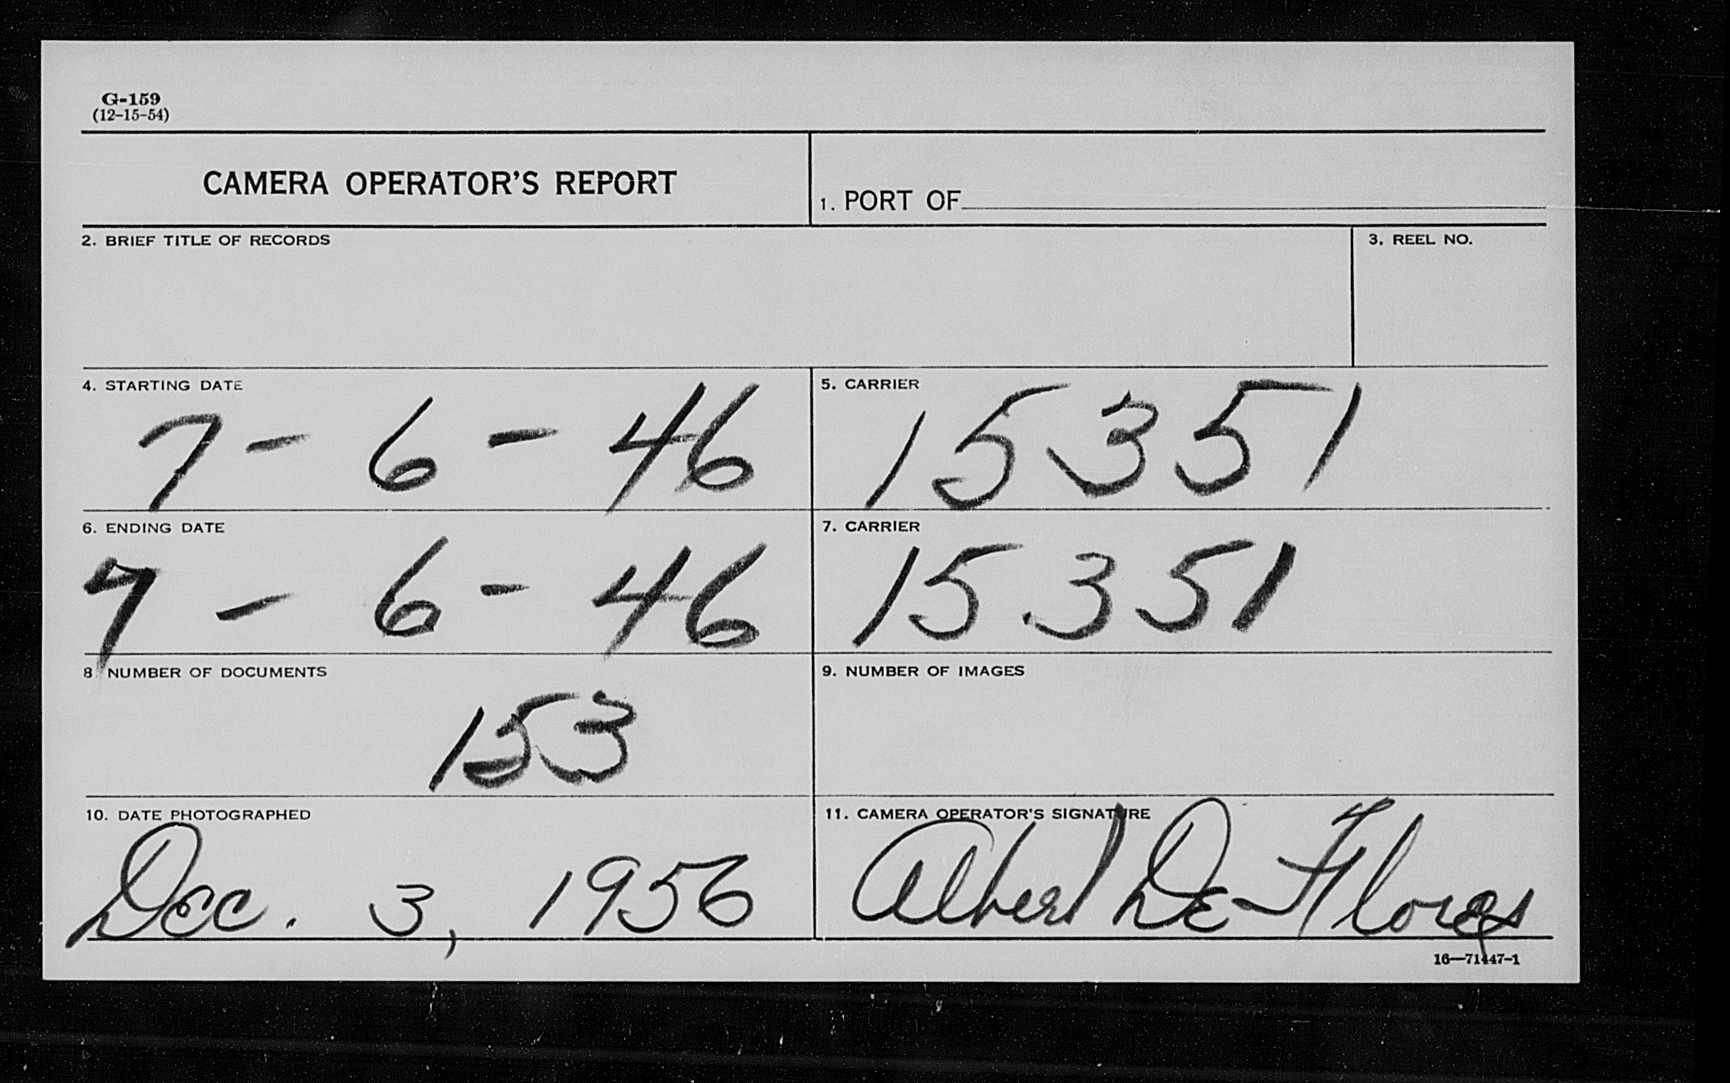 G-159
(12-15-54)
CAMERA OPERATOR'S REPORT
1. PORT OF
2. BRIEF TITLE OF RECORDS
3. REEL NO.
4. STARTING DATE
7 - 6 - 46
5. CARRIER
15351
6. ENDING DATE
7 - 6 - 46
7. CARRIER
15351
8 NUMBER OF DOCUMENTS
153
9. NUMBER OF IMAGES
10. DATE PHOTOGRAPHED
Dec. 3, 1956
11. CAMERA OPERATOR'S SIGNATURE
Albert De-Flores
16—71447-1